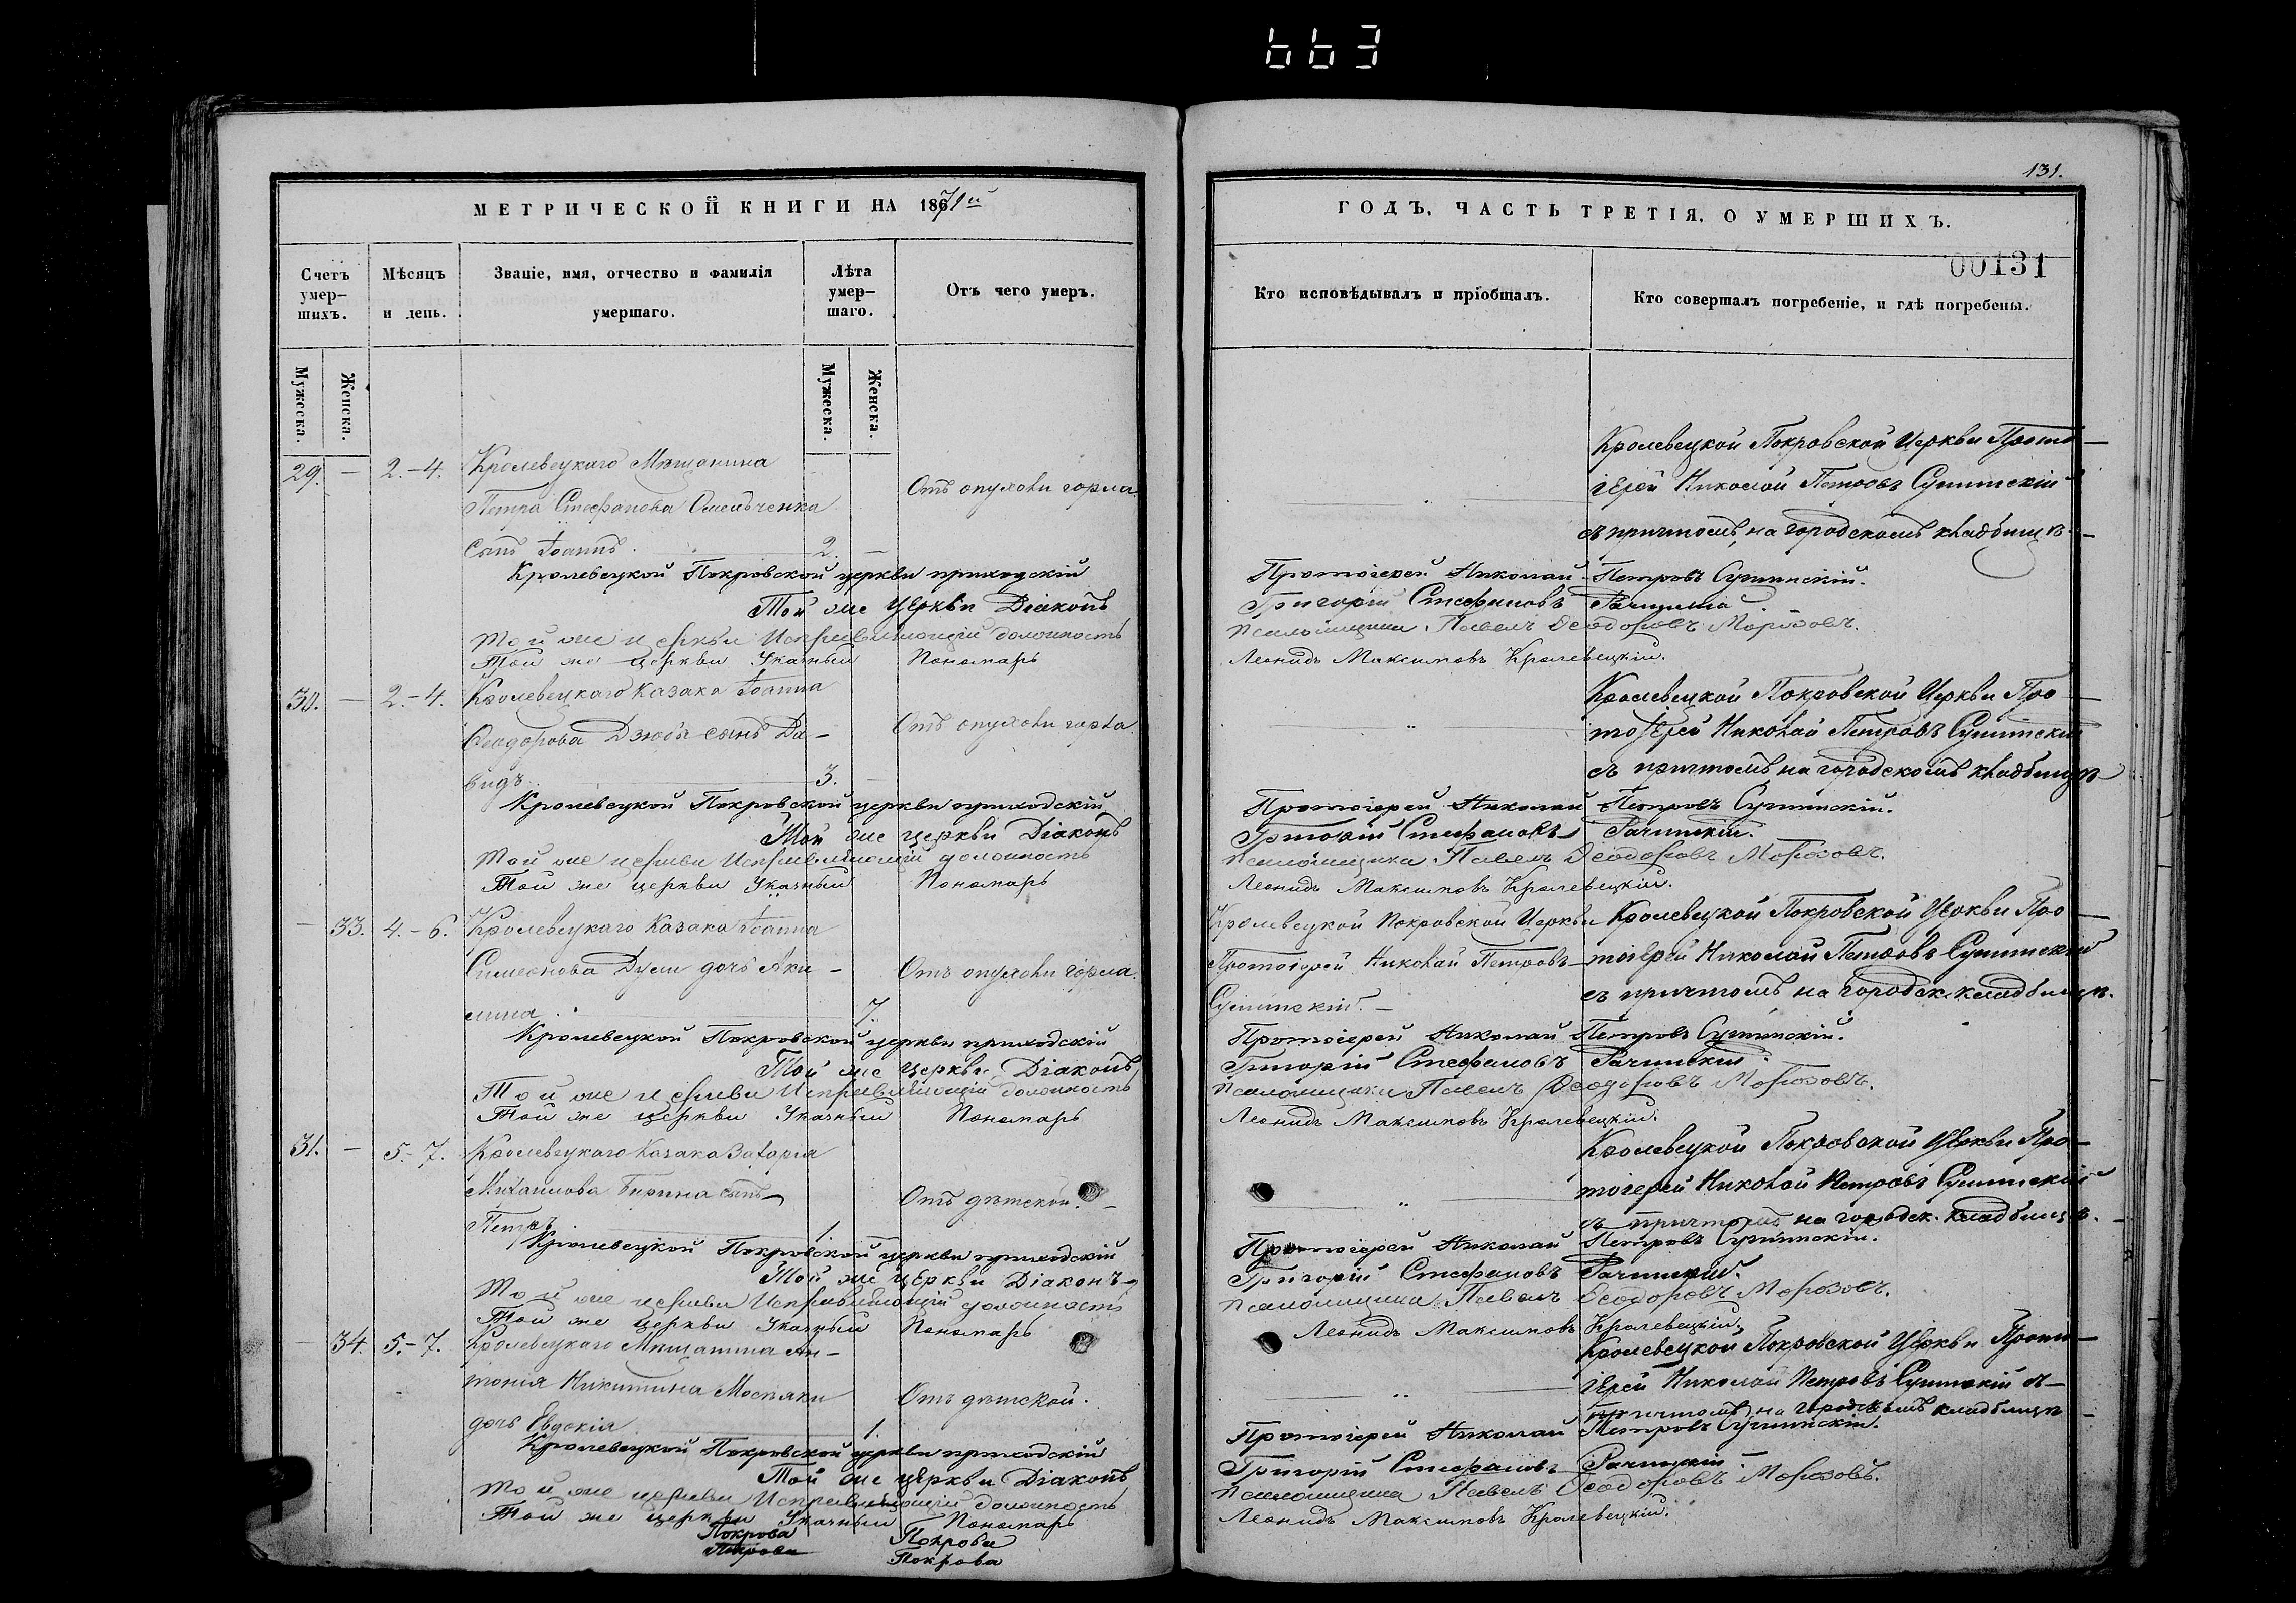 663
МЕТРИЧЕСКОЙ КНИГИ НА 1871й
Счетъ умер-шихъ.
Мѣсяцъ и день.
Званіе, имя, отчество и фамилія умершаго.
Лѣта умер-шаго.
Отъ чего умеръ.
Мужеска.
Женска.
Мужеска.
Женска.
29. — 2.-4. Кролевецкаго Мѣщанина
Петра Стефанова Омельченка
Отъ опухоли горла.
сынъ Іоаннъ. 2. —
Кролевецкой Покровской церкви приходскій
Той же церкви Діаконъ
Той же церкви Исправляющій должность
Той же церкви Указный Пономарь
30. — 2.-4. Кролевецкаго Казака Іоанна
Ѳеодорова Дзюбы сынъ Да-
Отъ опухоли горла.
видъ. 3. —
Кролевецкой Покровской церкви приходскій
Той же церкви Діаконъ
Той же церкви Исправляющій должность
Той же церкви Указный Пономарь
— 33. 4.-6. Кролевецкаго Казака Іоанна
Симеонова дочь Аки-
Отъ опухоли горла.
лина. 7.
Кролевецкой Покровской церкви приходскій
Той же церкви Діаконъ
Той же церкви Исправляющій должность
Той же церкви Указный Пономарь
31. — 5.-7. Кролевецкаго Казака Захарія
Михаилова сынъ
Отъ дѣтской.
Петръ. 1. —
Кролевецкой Покровской церкви приходскій
Той же церкви Діаконъ
Той же церкви Исправляющій должность
Той же церкви Указный Пономарь
— 34. 5.-7. Кролевецкаго Мѣщанина Ан-
тонія Никитина
Отъ дѣтской.
дочь Евдокія 1.
Кролевецкой Покровской церкви приходскій
Той же церкви Діаконъ
Той же церкви Исправляющій должность
Той же церкви Указный Пономарь
Покрова Покрова
Покрова Покрова
131.
ГОДЪ, ЧАСТЬ ТРЕТІЯ, О УМЕРШИХЪ.
00131
Кто исповѣдывалъ и пріобщалъ.
Кто совершалъ погребеніе, и гдѣ погребены.
Кролевецкой Покровской Церкви Прото-
іерей Николай Петровъ
съ причтомъ, на городскомъ кладбищѣ.
Протоіерей Николай Петровъ
Григорій Стефановъ
Псаломщика Павелъ Ѳеодоровъ Морозовъ.
Леонидъ Максимовъ Кролевецкій.
Кролевецкой Покровской Церкви Про-
тоіерей Николай Петровъ
съ причтомъ, на городскомъ кладбищѣ
Протоіерей Николай Петровъ
Григорій Стефановъ
Псаломщика Павелъ Ѳеодоровъ Морозовъ.
Леонидъ Максимовъ Кролевецкій.
Кролевецкой Покровской Церкви Кролевецкой Покровской Церкви Про-
Протоіерей Николай Петровъ тоіерей Николай Петровъ
съ причтомъ на городск. кладбищѣ.
Протоіерей Николай Петровъ
Григорій Стефановъ
Псаломщика Павелъ Ѳеодоровъ Морозовъ.
Леонидъ Максимовъ Кролевецкій.
Кролевецкой Покровской Церкви Про-
тоіерей Николай Петровъ
съ причтомъ на городск. кладбищѣ.
Протоіерей Николай Петровъ
Григорій Стефановъ
Псаломщика Павелъ Ѳеодоровъ Морозовъ.
Леонидъ Максимовъ Кролевецкій.
Кролевецкой Покровской Церкви Прото-
іерей Николай Петровъ съ
причтомъ, на городскомъ кладбищѣ
Протоіерей Николай Петровъ
Григорій Стефановъ
Псаломщика Павелъ Ѳеодоровъ Морозовъ.
Леонидъ Максимовъ Кролевецкій.